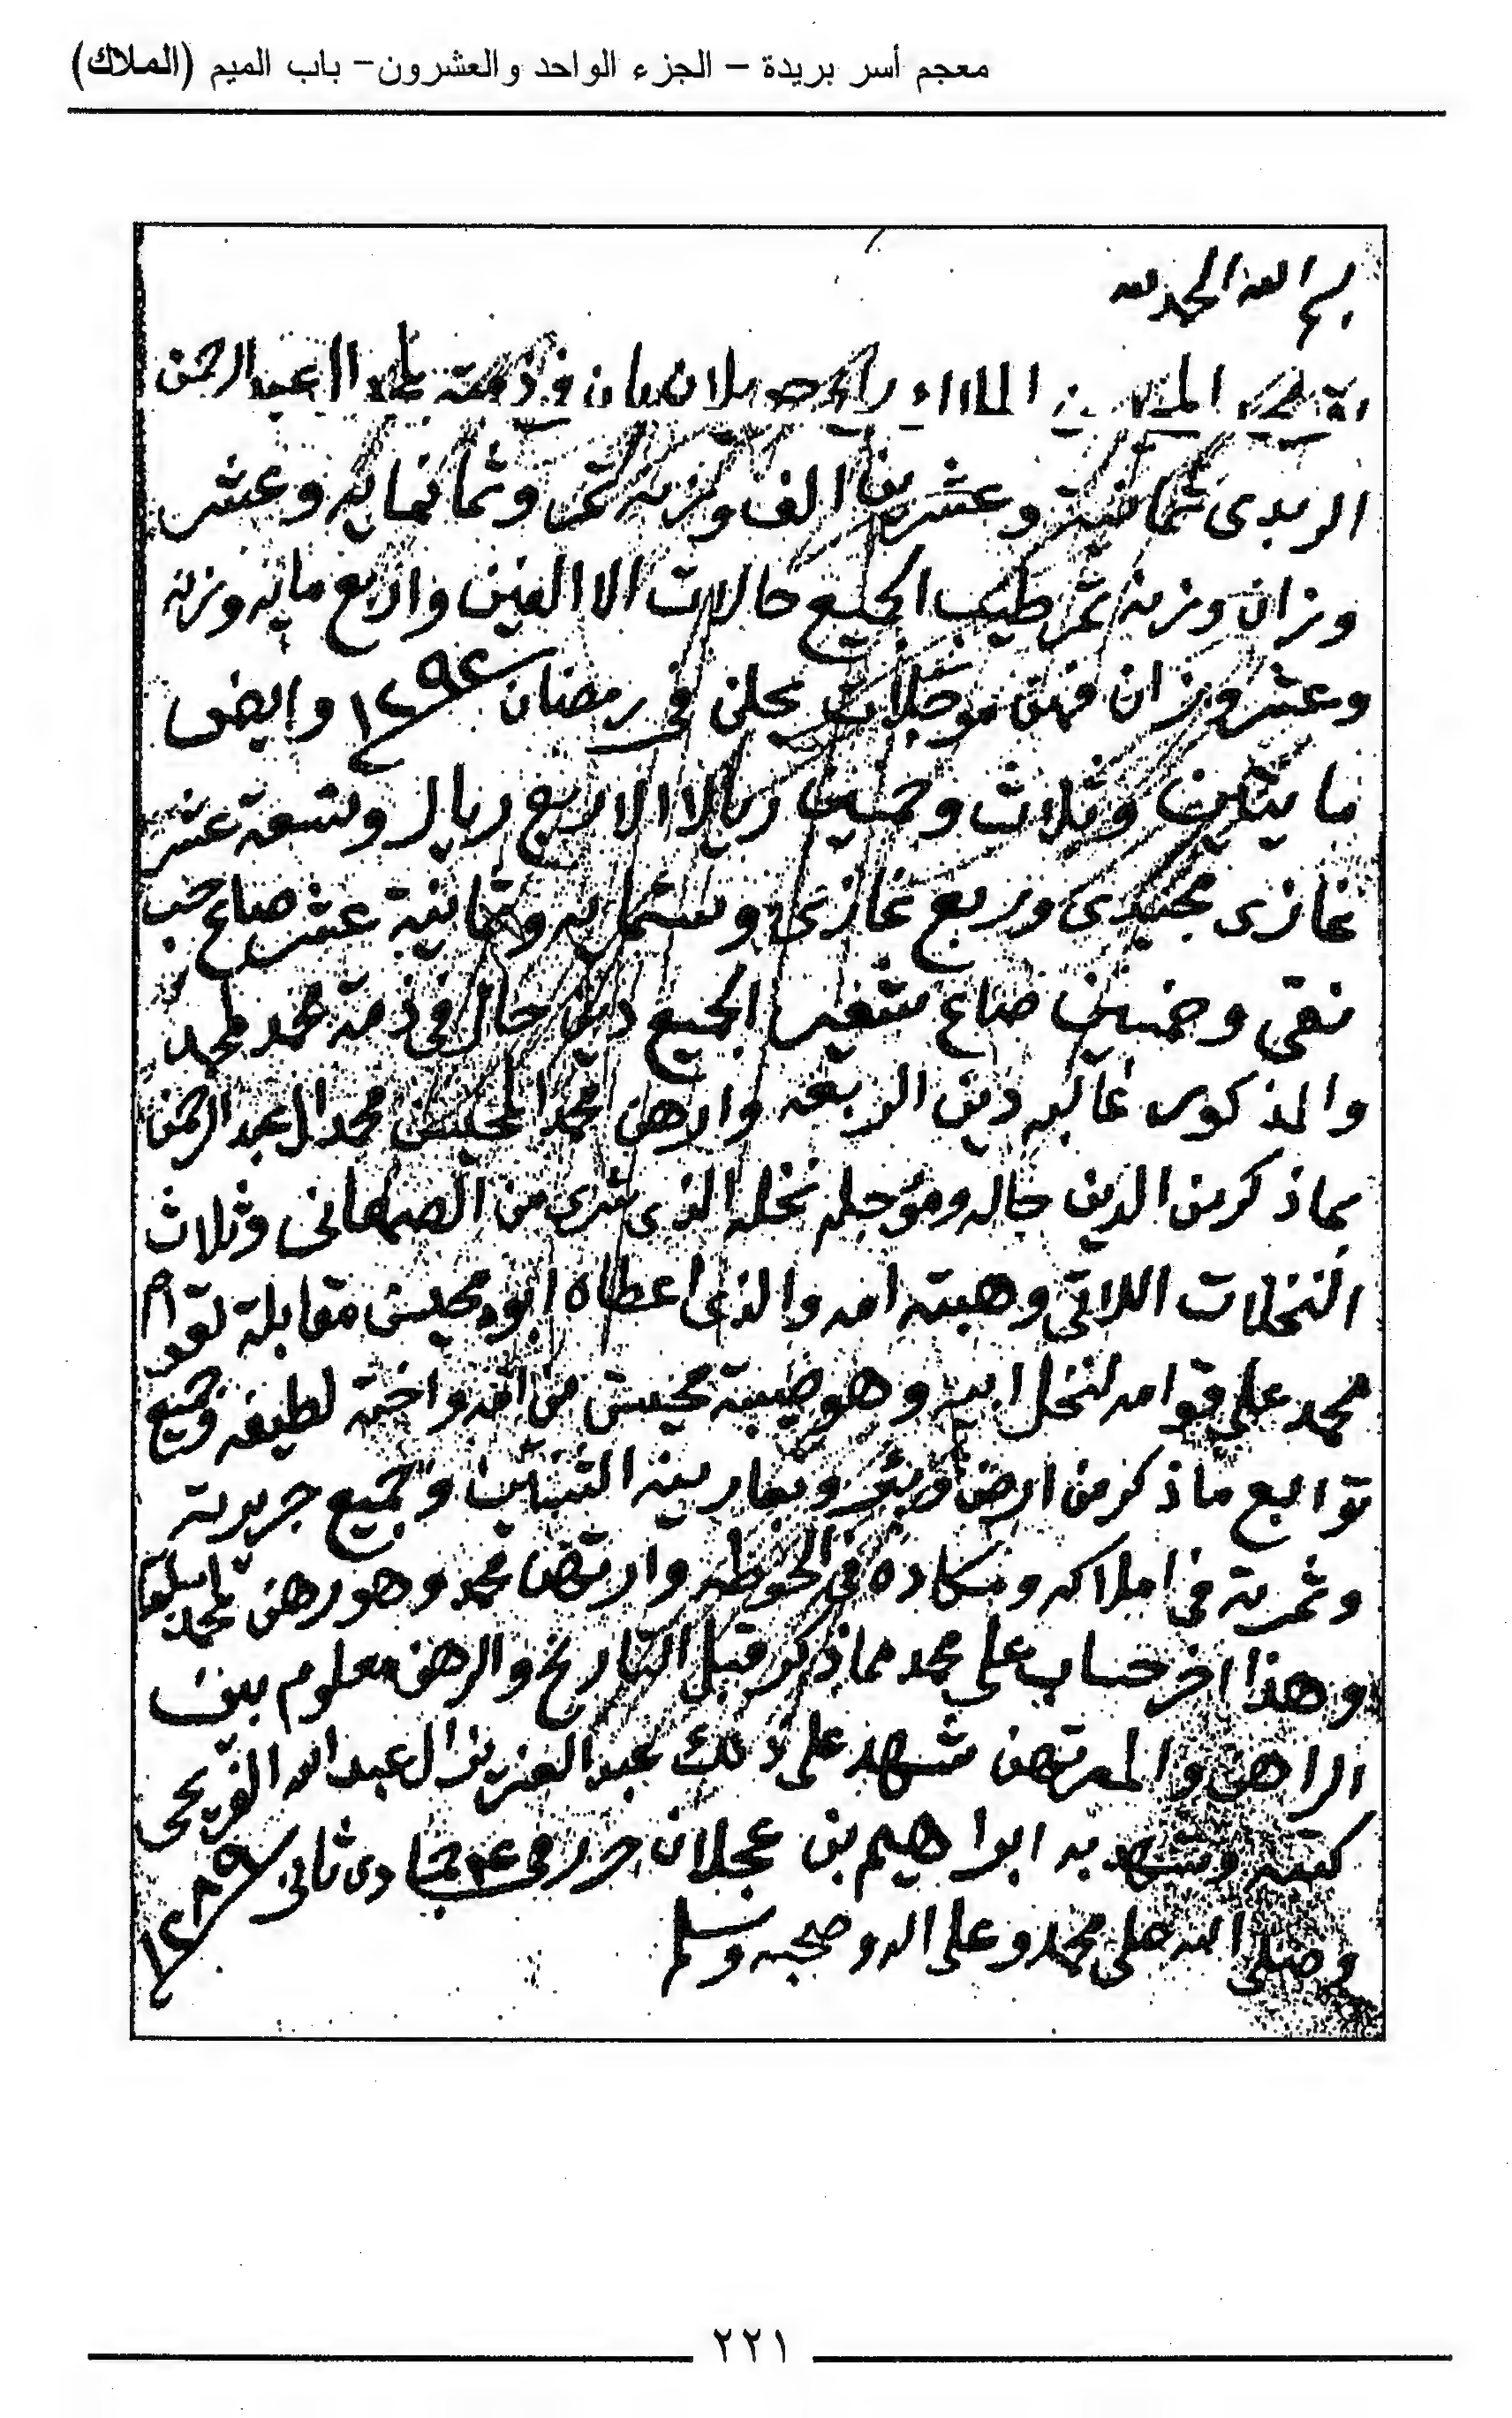 معجم أسر بريدة – الجزء الواحد والعشرون– باب الميم (الملاك)
بسم الله الحمد لله
في ذمته لمحمد العبدالرحمن
الربدي ثمانية وعشرين الف وزنه تمر وثمانمايه وعشر
وزان وزنه تمر طيب الجميع حالات الا الفين واربع مايه وزنه
وعشر وزان فهن موجلات يحلن في رمضان ١٢٩٤ وايضى
مايتين وثلاث وخمسين ريالا الا اربع ريال وتسعة عشر
غازى مجيدى وربع غازى وستمايه وثمانية عشر صاع حب
نقى وخمسين صاع شعير الجميع دين حال في ذمة محمد لمحمد
والمذكور غالبه دين الربعه وارهن محمد المحيسن محمد العبدالرحمن
بماذكر من الدين حاله ومؤجله نخله الذى شرى من الصمعانى وثلاث
النخلات اللاتي وهبته امه والذى اعطاه ابوه محيسن مقابلة لقوام
محمد على قوامه لنخل ابيه وهو صيبة محيسن من امه واخته لطيفه وجميع
توابع ماذكر من ارض وبئر وجميع جريرته
وثمرته في املاكه ومكاده في الخوطه وارتهن محمد وهو رهن لمحمد
وهذا اخر حساب على محمد مماذكر قبل التاريخ والرهن معلوم بين
الراهن والمرتهن شهد على ذلك عبدالعزيز العبدالله
كتبه وشهد به ابراهيم بن عجلان حرر في جمادى ثانى ١٢٨٩
وصلى الله على محمد وعلى اله وصحبه وسلم
٢٢١